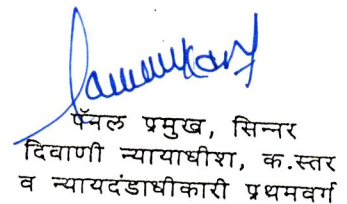 पॅनल प्रमुख, सिन्नर
दिवाणी न्यायाधीश, क.स्तर
व न्यायदंडाधीकारी प्रथमवर्ग